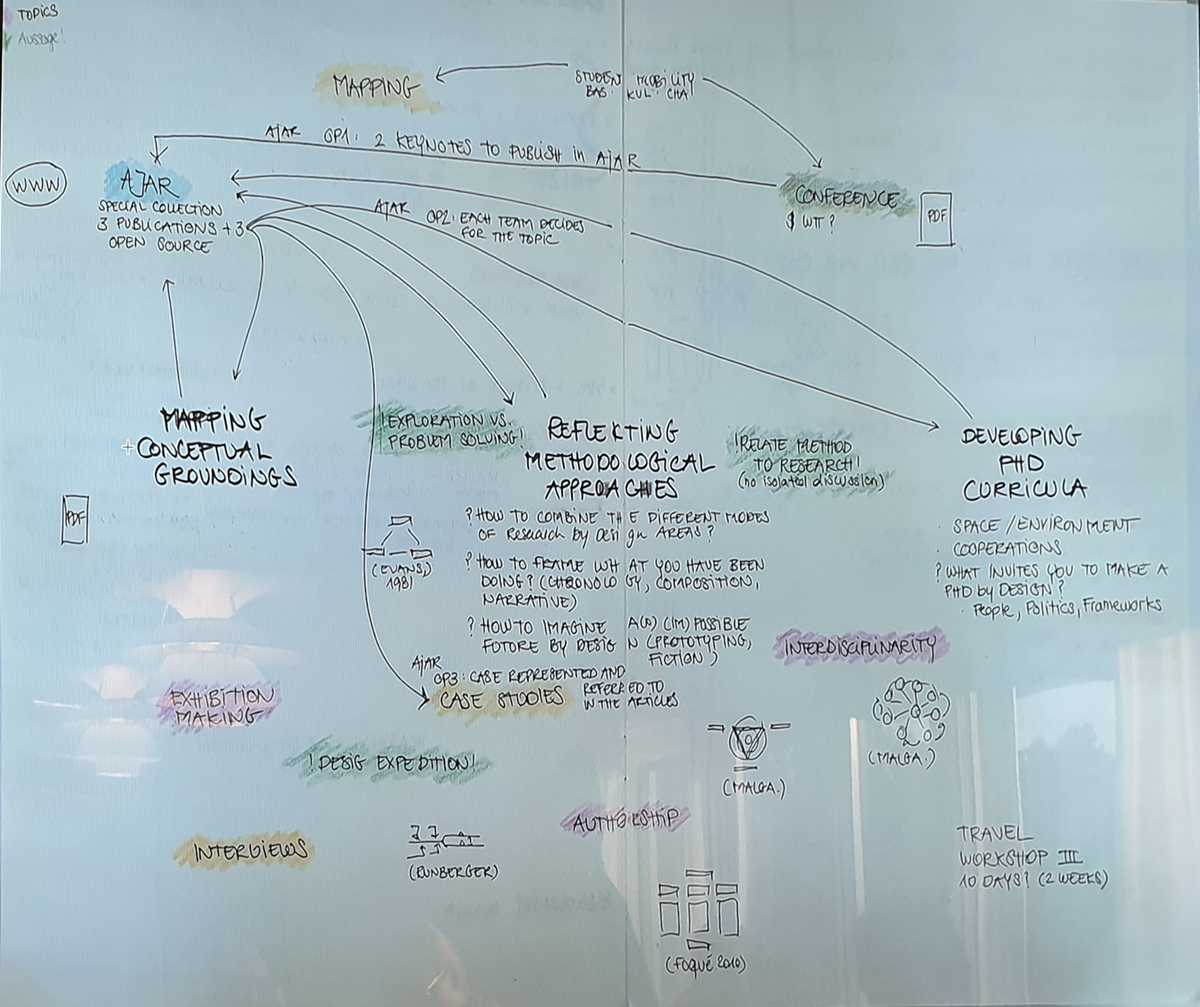 TOPICS
Aussage!
MAPPING
STUDENT MOBILITY
BAS. KUL. CHA
AJAR OP1: 2 KEYNOTES TO PUBLISH in AJAR
WWW
AJAR
SPECIAL COLLECTION
3 PUBLICATIONS +3
OPEN SOURCE
AJAR OP2: EACH TEAM DECIDES
FOR THE TOPIC
CONFERENCE
PDF
MAPPING
+ CONCEPTUAL
GROUNDINGS
PDF
!EXPLORATION VS.
PROBLEM SOLVING!
REFLEKTING
METHODOLOGICAL
APPROACHES
!RELATE METHOD
TO RESEARCH!
(no isolated discussion)
DEVELOPING
PHD
CURRICULA
(EVANS,
1981
? HOW TO COMBINE THE DIFFERENT MODES
OF Research by Design AREAS?
? HOW TO FRAME WHAT YOU HAVE BEEN
DOING? (CHRONOLOGY, COMPOSITION,
NARRATIVE)
? HOW TO IMAGINE A(N) (IM) POSSIBLE
FUTORE BY DESIGN (PROTOTYPING,
FICTION)
· SPACE / ENVIRONMENT
· COOPERATIONS
? WHAT INVITES YOU TO MAKE A
PHD by DESIGN?
· People, Politics, Frameworks
AJAR
OP3: CASE REPRESENTED AND
REFERRED TO
IN THE ARTICLES
CASE STUDIES
INTERDISCIPLINARITY
EXHIBITION
MAKING
(MALGA.)
! DESIG EXPEDITION!
(MALGA.)
AUTHORSHIP
INTERVIEWS
(RUNBERGER)
TRAVEL
WORKSHOP III
10 DAYS? (2 WEEKS)
(FOQUÉ 2010)